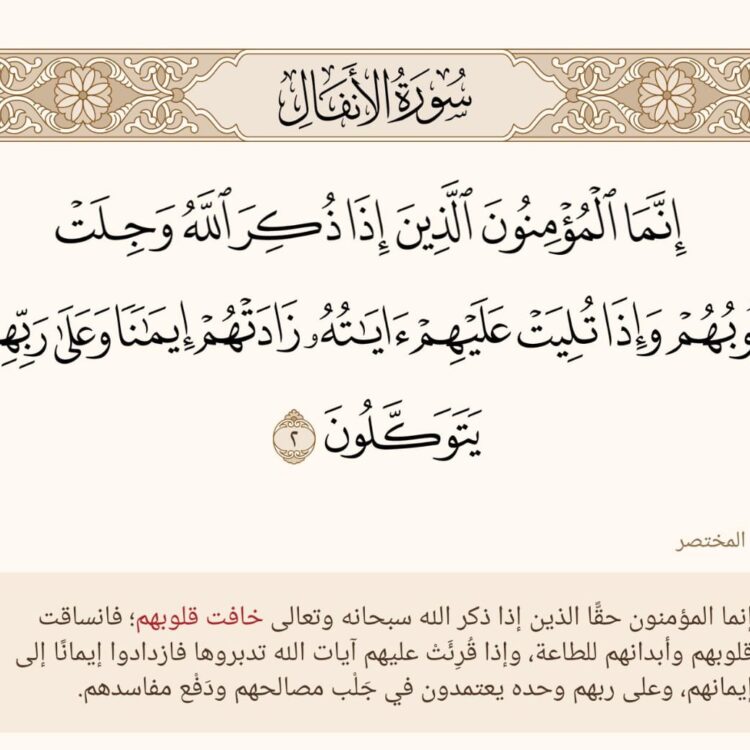 سُورَةُ الأَنفَالِ
إِنَّمَا ٱلْمُؤْمِنُونَ ٱلَّذِينَ إِذَا ذُكِرَ ٱللَّهُ وَجِلَتْ
وبُهُمْ وَإِذَا تُلِيَتْ عَلَيْهِمْ ءَايَـٰتُهُۥ زَادَتْهُمْ إِيمَـٰنًا وَعَلَىٰ رَبِّهِ
يَتَوَكَّلُونَ ٢
المختصر
إنما المؤمنون حقًّا الذين إذا ذكر الله سبحانه وتعالى خافت قلوبهم؛ فانساقت
قلوبهم وأبدانهم للطاعة، وإذا قُرِئَتْ عليهم آيات الله تدبروها فازدادوا إيمانًا إلى
إيمانهم، وعلى ربهم وحده يعتمدون في جَلْب مصالحهم ودَفْع مفاسدهم.